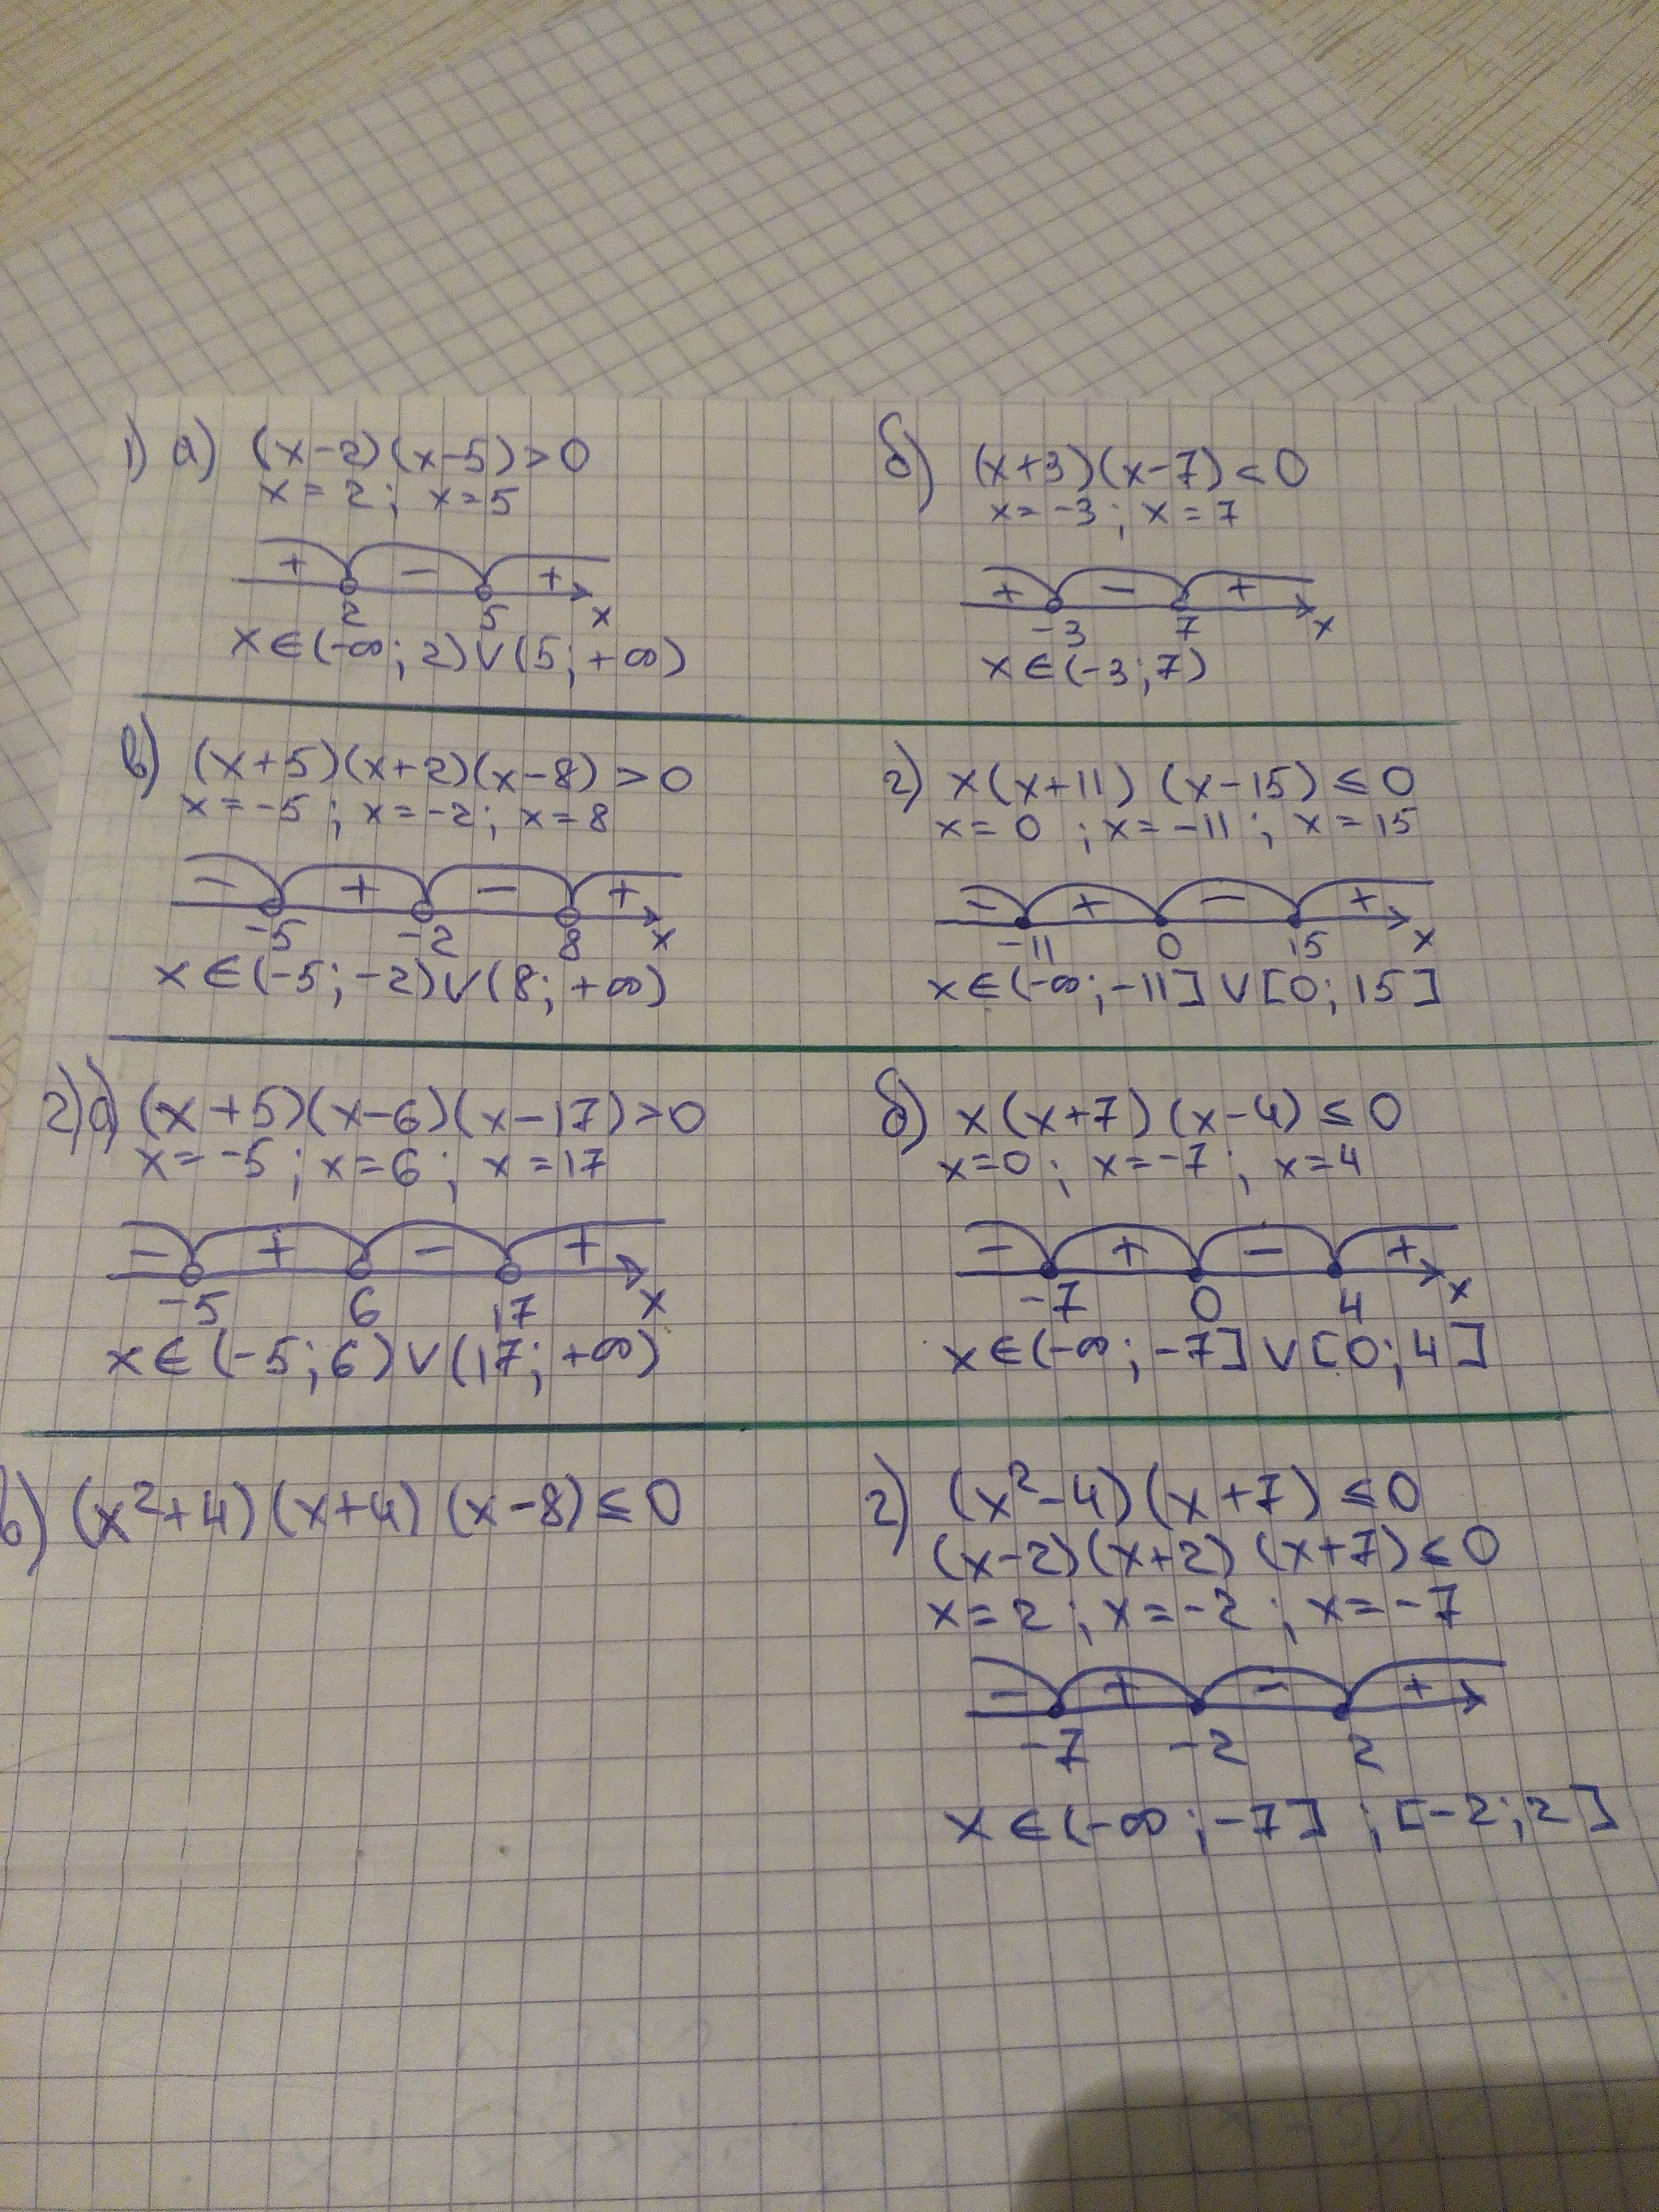 1) а) (x-2)(x-5)>0
x=2; x=5
+ - +
2 5 x
x∈(-∞; 2)∨(5; +∞)
б) (x+3)(x-7)<0
x=-3; x=7
+ - +
-3 7 x
x∈(-3;7)
в) (x+5)(x+2)(x-8)>0
x=-5; x=-2; x=8
- + - +
-5 -2 8 x
x∈(-5;-2)∨(8; +∞)
г) x(x+11)(x-15)≤0
x=0; x=-11; x=15
- + - +
-11 0 15 x
x∈(-∞;-11]∨[0; 15]
2) а) (x+5)(x-6)(x-17)>0
x=-5; x=6; x=17
- + - +
-5 6 17 x
x∈(-5;6)∨(17; +∞)
б) x(x+7)(x-4)≤0
x=0; x=-7; x=4
- + - +
-7 0 4 x
x∈(-∞; -7]∨[0; 4]
в) (x²+4)(x+4)(x-8)≤0
г) (x²-4)(x+7)≤0
(x-2)(x+2)(x+7)≤0
x=2; x=-2; x=-7
- + - +
-7 -2 2
x∈(-∞;-7] ; [-2;2]